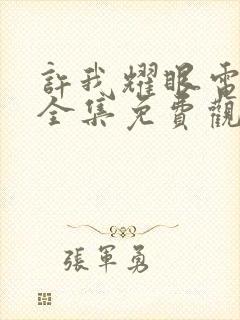 許我耀眼電
全集免費觀
張軍勇